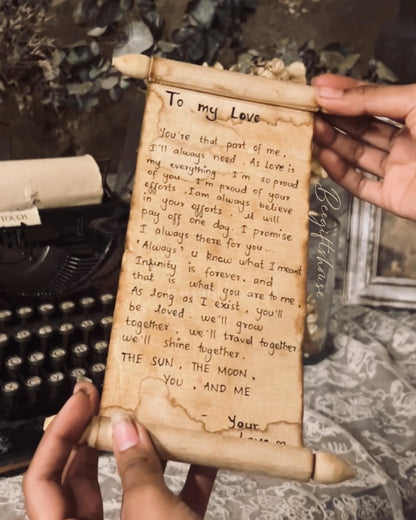 To my Love
You're that part of me.
I'll always need. As love is
my everything. I'm so proud
of you. I'm proud of your
efforts. Iam always believe
in your efforts. It will
pay off one day. I promise
I always there for you....
"Always". u know what I meant
Infinity is forever. and
that is what you are to me.
As long as I exist, you'll
be loved. we'll grow
together, we'll travel together
we'll shine together.
THE SUN, THE MOON,
YOU, AND ME
- Your
Love
Beegiftshouse
TOUCH